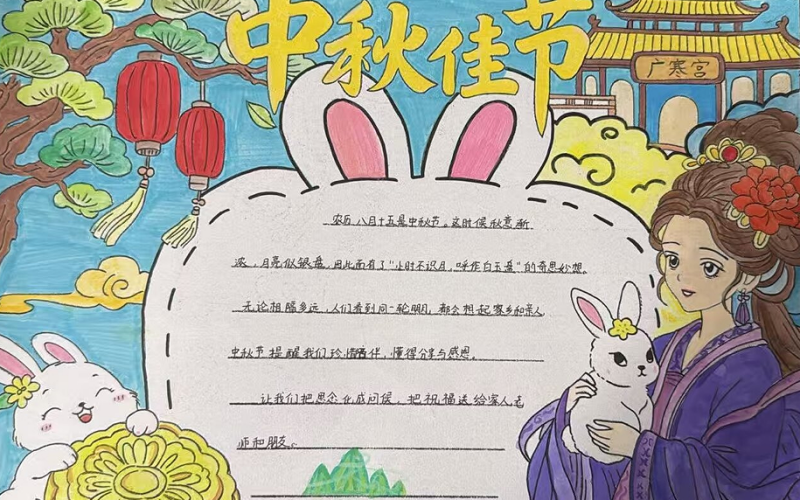 中秋佳节
广寒宫
农历八月十五是中秋节。这时候秋意渐
浓，月亮似银盘，因此而有了“小时不识月，呼作白玉盘”的奇思妙想。
无论相隔多远，人们看到同一轮明月，都会想起家乡和亲人
中秋节提醒我们珍惜陪伴，懂得分享与感恩。
让我们把思念化成问候，把祝福送给家人老
师和朋友。